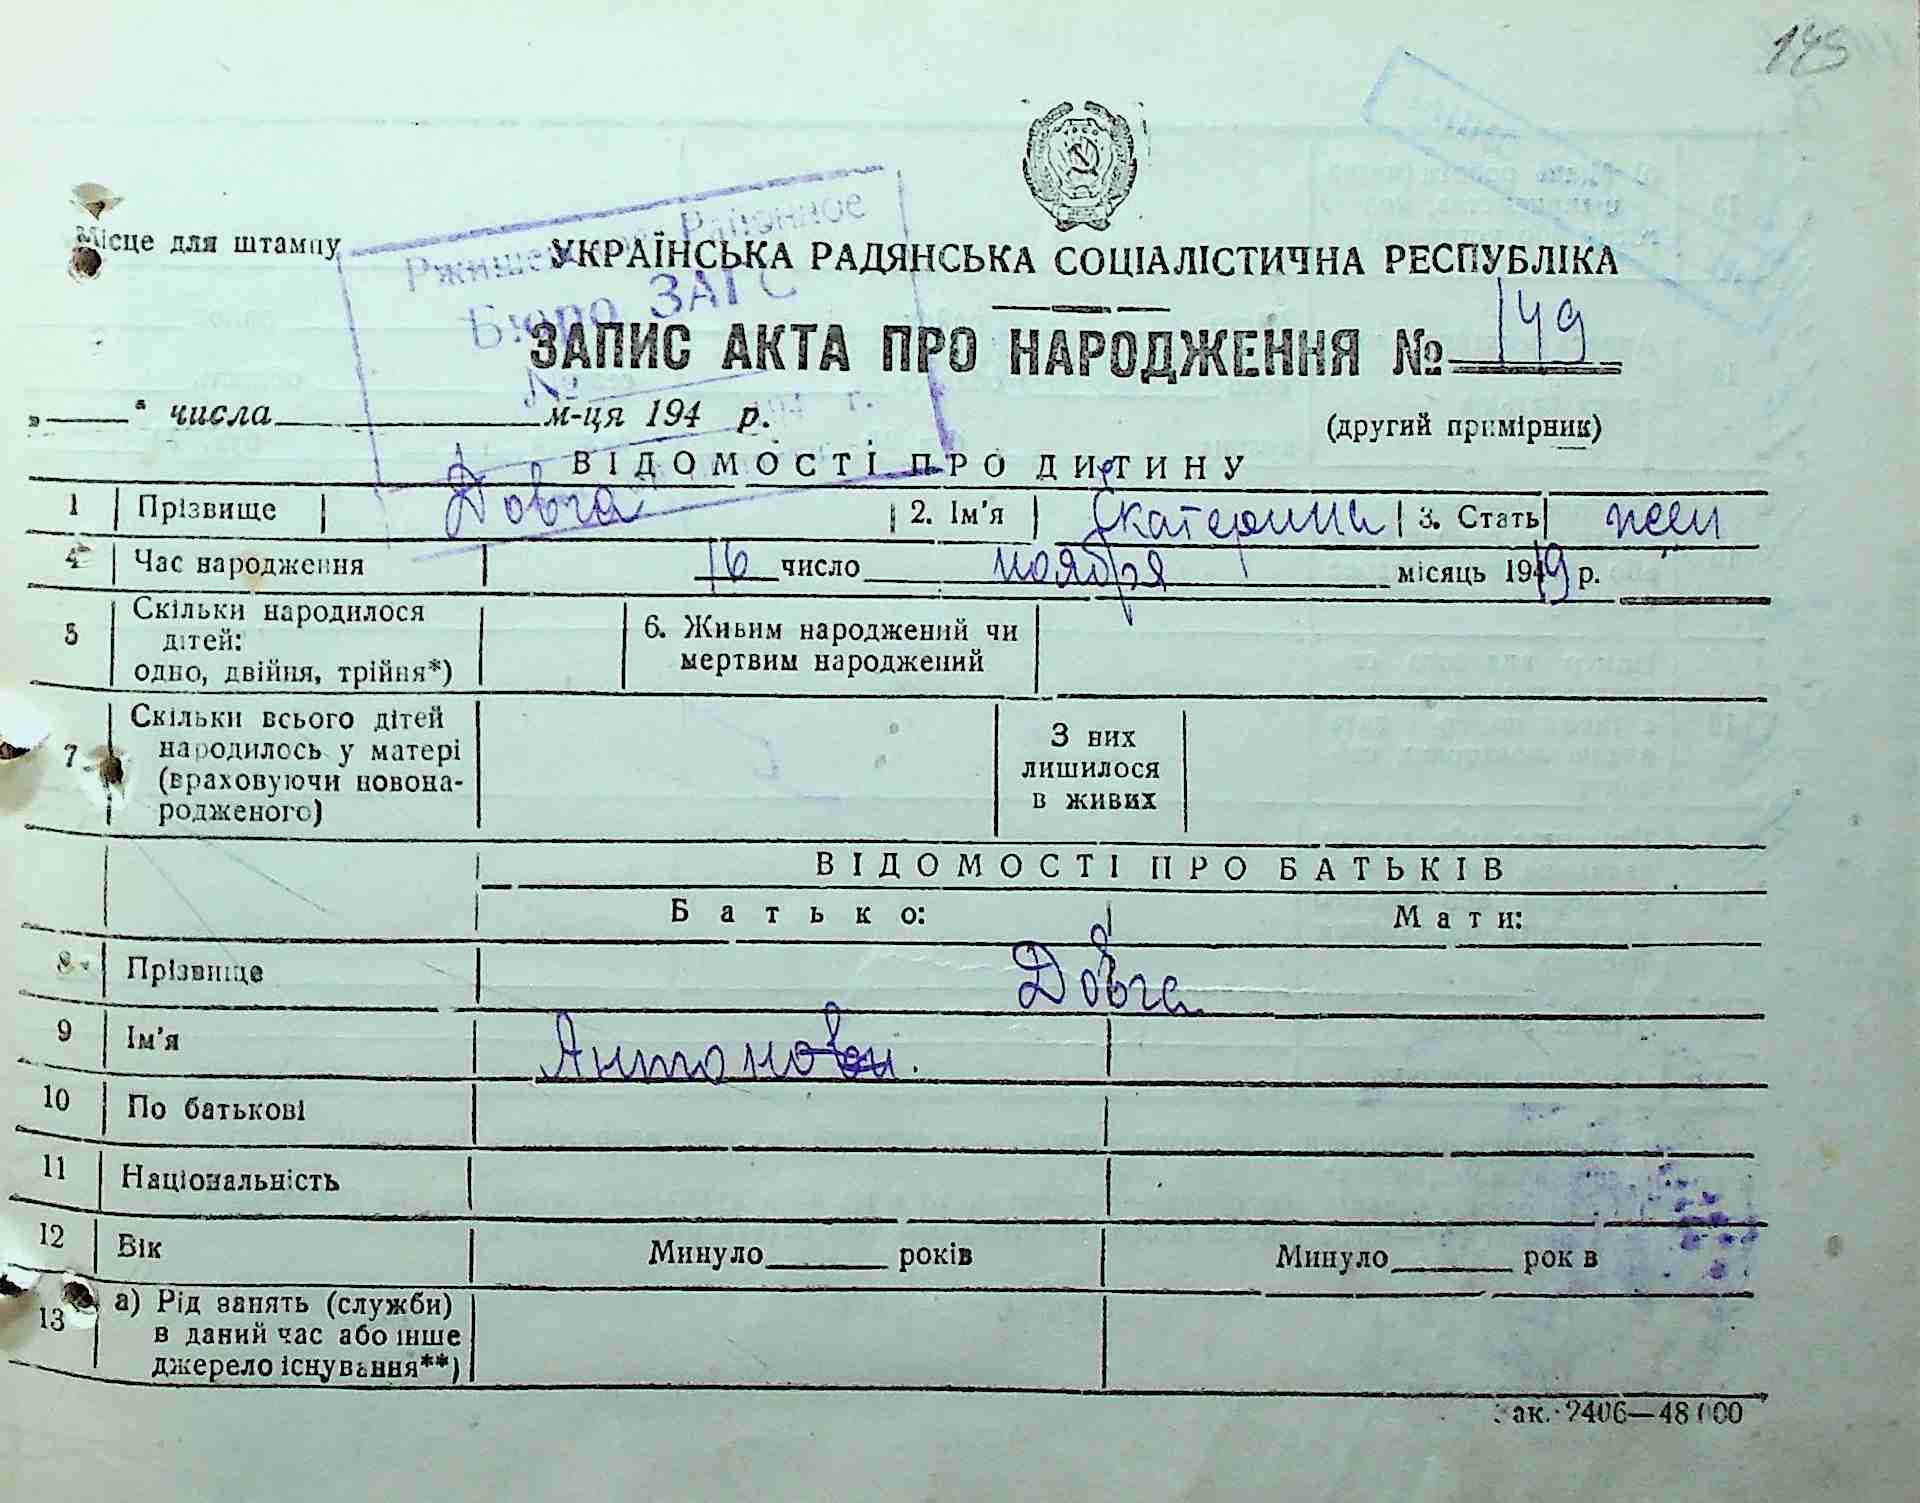 145
Місце для штампу
Ржищевское Районное
Бюро ЗАГС
№
194 г.
УКРАЇНСЬКА РАДЯНСЬКА СОЦІАЛІСТИЧНА РЕСПУБЛІКА
ЗАПИС АКТА ПРО НАРОДЖЕННЯ № 149
„ “ числа м-ця 194 р.
(другий примірник)
ВІДОМОСТІ ПРО ДИТИНУ
1 Прізвище Довга 2. Ім’я Екатерина 3. Стать жен
4 Час народження 16 число ноября місяць 1949 р.
5 Скільки народилося
дітей:
одно, двійня, трійня*)
6. Живим народжений чи
мертвим народжений
7 Скільки всього дітей
народилось у матері
(враховуючи новона-
родженого)
З них
лишилося
в живих
ВІДОМОСТІ ПРО БАТЬКІВ
Батько: Мати:
8 Прізвище Довга
9 Ім’я Антонови.
10 По батькові
11 Національність
12 Вік Минуло років Минуло рок в
13 а) Рід занять (служби)
в даний час або інше
джерело існування**)
Зак. 2406—48 000